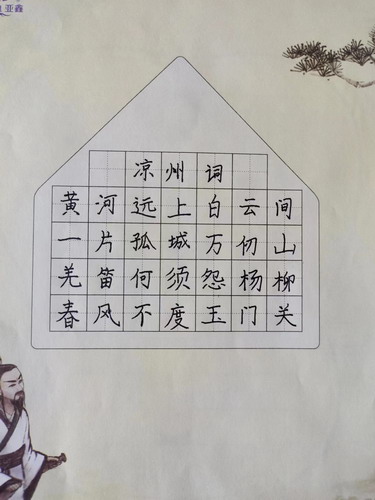 亚鑫
凉州词
黄河远上白云间
一片孤城万仞山
羌笛何须怨杨柳
春风不度玉门关